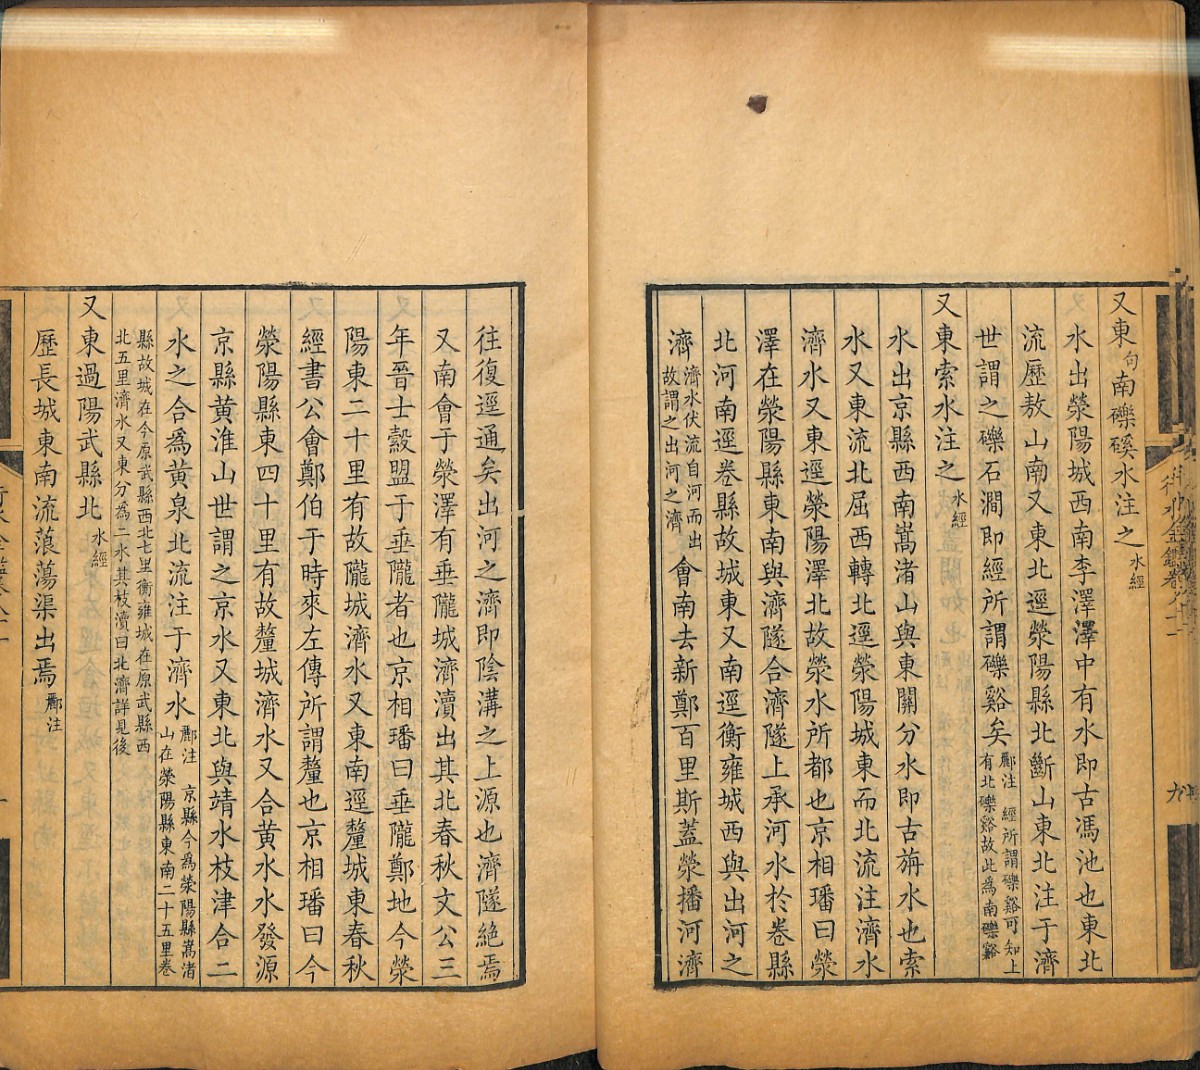 又東句南礫磎水注之水經
水出滎陽城西南李澤澤中有水即古馮池也東北
流歷敖山南又東北逕滎陽縣北斷山東北注于濟
世謂之礫石澗即經所謂礫谿矣酈注 經所謂礫谿可知上有北礫谿故此為南礫谿
又東索水注之水經
水出京縣西南嵩渚山與東關分水即古旃水也索
水又東流北屈西轉北逕滎陽城東而北流注濟水
濟水又東逕滎陽澤北故滎水所都也京相璠曰滎
澤在滎陽縣東南與濟隧合濟隧上承河水於卷縣
北河南逕卷縣故城東又南逕衡雍城西與出河之
濟濟水伏流自河而出故謂之出河之濟會南去新鄭百里斯蓋滎播河濟
往復逕通矣出河之濟即陰溝之上源也濟隧絕焉
又南會于滎澤有垂隴城濟瀆出其北春秋文公三
年晉士縠盟于垂隴者也京相璠曰垂隴鄭地今滎
陽東二十里有故隴城濟水又東南逕釐城東春秋
經書公會鄭伯于時來左傳所謂釐也京相璠曰今
滎陽縣東四十里有故釐城濟水又合黃水水發源
京縣黃淮山世謂之京水又東北與靖水枝津合二
水之合為黃泉北流注于濟水酈注 京縣今為滎陽縣嵩渚山在滎陽縣東南二十五里卷
縣故城在今原武縣西北七里衡雍城在原武縣西北五里濟水又東分為二水其枝瀆曰北濟詳見後
又東過陽武縣北水經
歷長城東南流蒗蕩渠出焉酈注